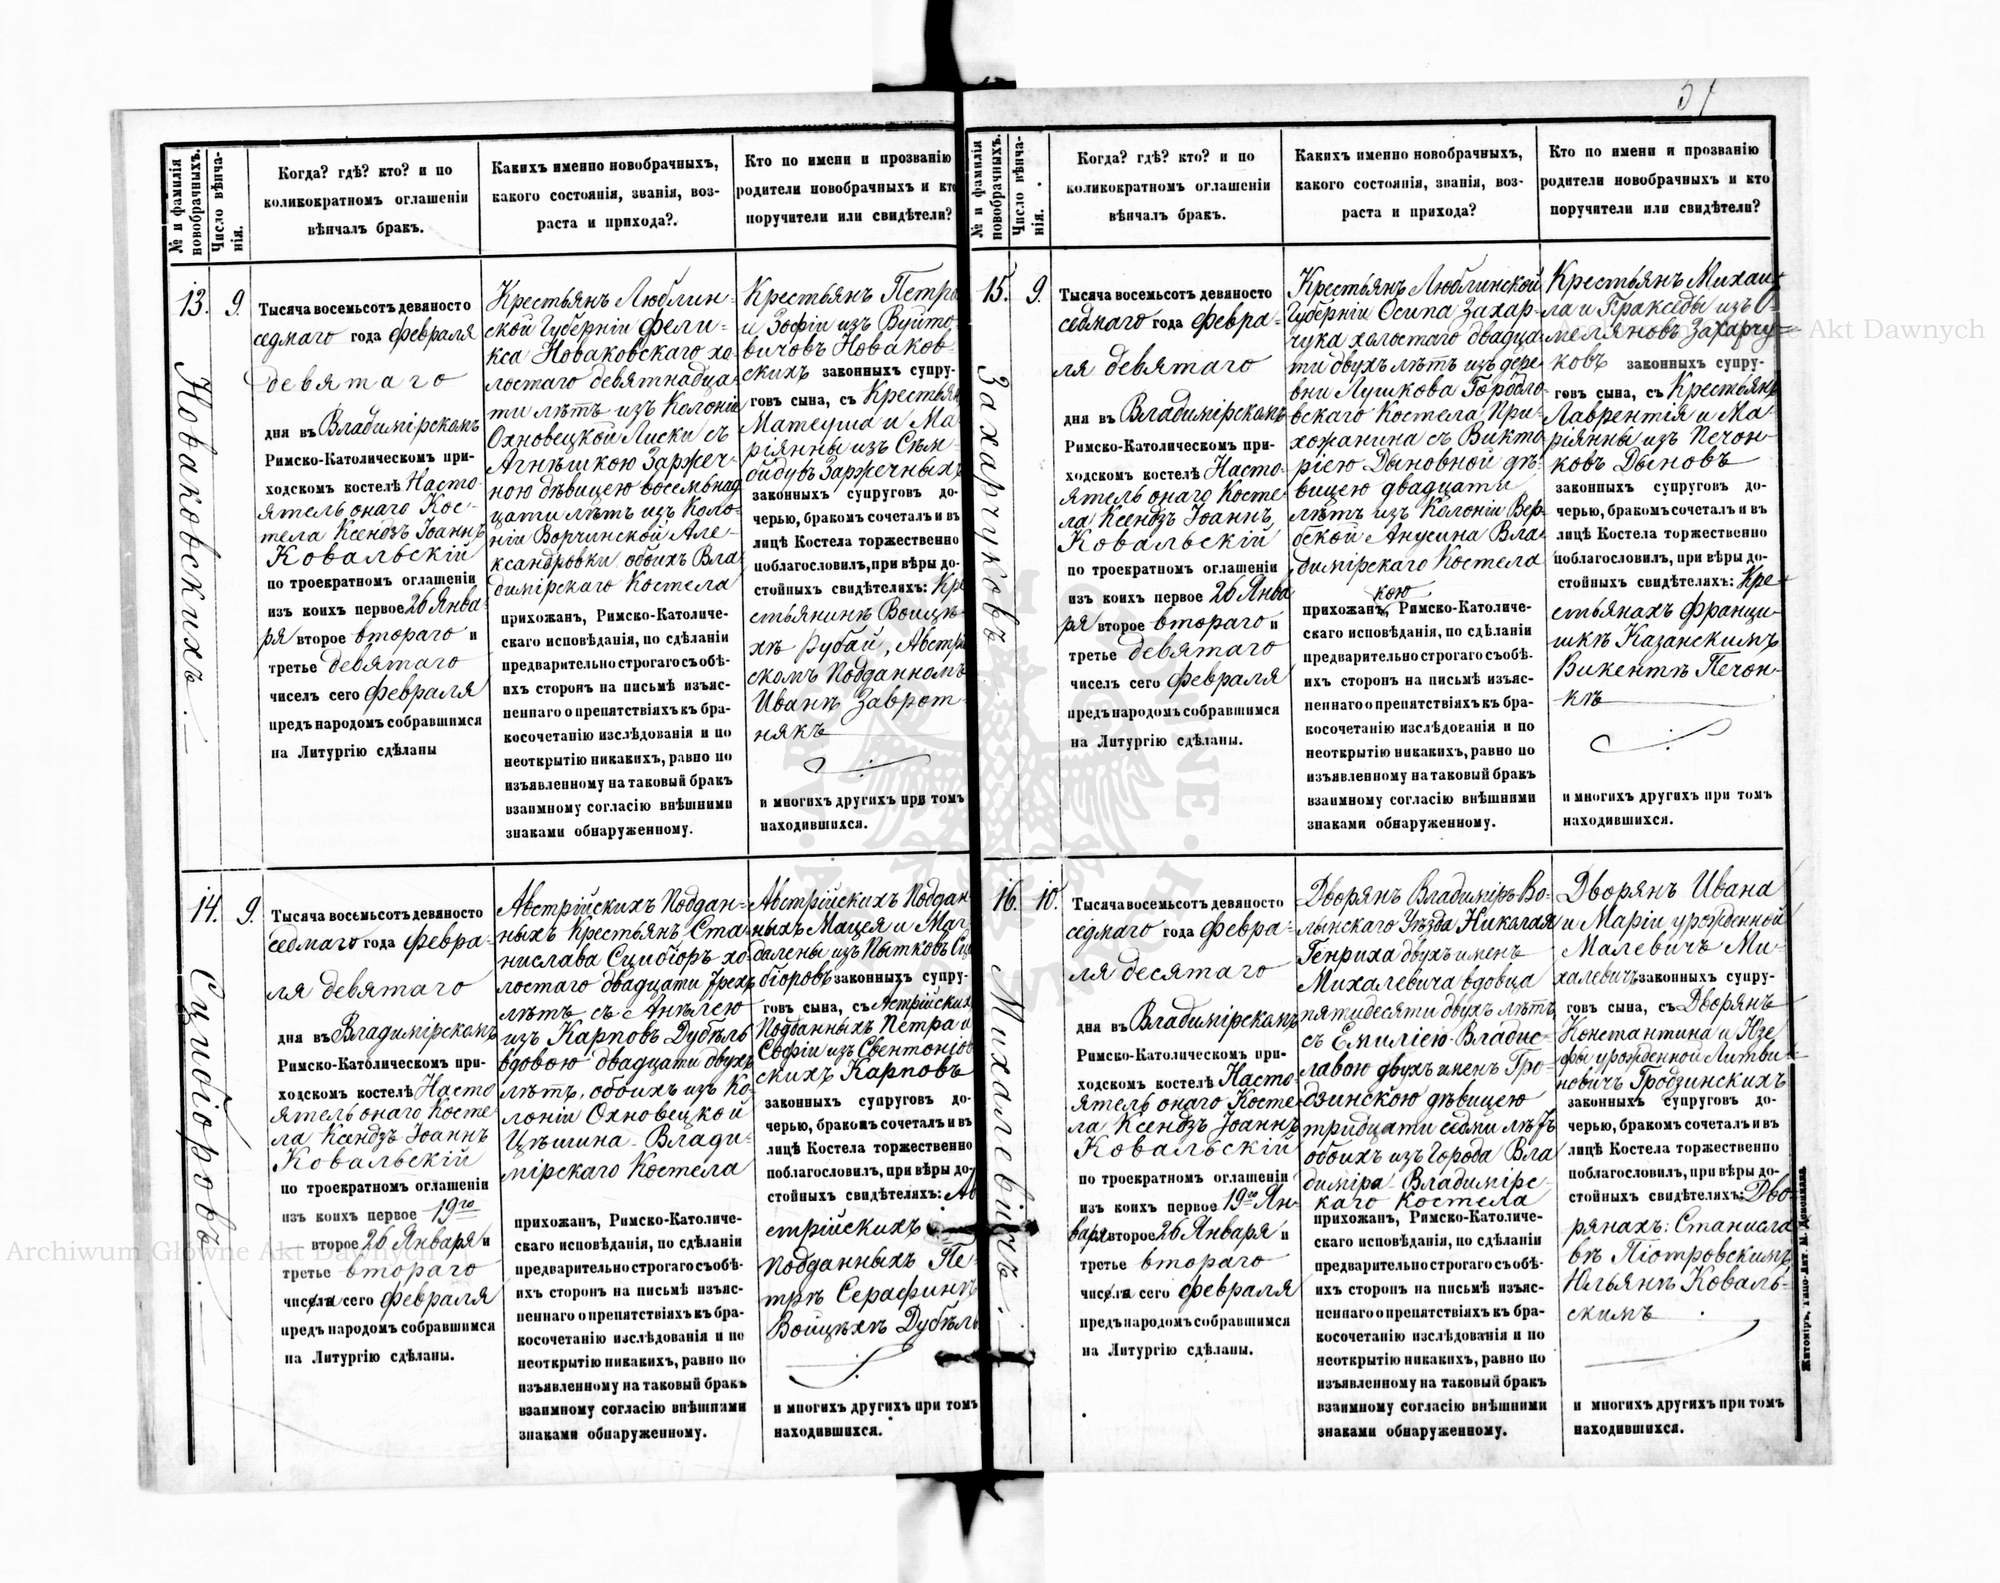 51
№ и фамилія новобрачныхъ.
Число вѣнчанія.
Когда? гдѣ? кто? и по
коликократномъ оглашеніи
вѣнчалъ бракъ.
Какихъ именно новобрачныхъ,
какого состоянія, званія, воз-
раста и прихода?.
Кто по имени и прозванію
родители новобрачныхъ и кто
поручители или свидѣтели?
13.
Новаковскихъ.
9.
Тысяча восемьсотъ девяносто
седмаго года февраля
девятаго
дня въ Владимірскомъ
Римско-Католическомъ при-
ходскомъ костелѣ Насто-
ятель онаго Кос-
тела Ксендзъ Іоаннъ
Ковальскій
по троекратномъ оглашеніи
изъ коихъ первое 26 Янва-
ря второе втораго и
третье девятаго
числъ сего февраля
предъ народомъ собравшимся
на Литургію сдѣланы
Крестьянъ Люблин-
ской Губерніи Фели-
кса Новаковскаго хо-
лостаго девятнадца-
ти лѣтъ изъ Колоніи
Охновецкой Лиски съ
Агнѣшкою Заржеч-
ною дѣвицею восемьнад
цати лѣтъ изъ Коло-
ніи Ворчинской Але-
ксандровки обоихъ Вла
димірскаго Костела
прихожан, Римско-Католиче-
скаго исповѣданія, по сдѣланіи
предварительно строгаго съ обѣ-
ихъ сторонъ на письмѣ изъяс-
неннаго о препятствіяхъ къ бра-
косочетанію изслѣдованія и по
неоткрытію никакихъ, равно по
изъявленному на таковый бракъ
взаимному согласію внѣшними
знаками обнаруженному.
Крестьянъ Петра
и Зофіи изъ Вуйто-
вичовъ Новаков-
скихъ законныхъ супру-
говъ сына, съ Крестьян
Матеуша и Ма-
ріянны изъ Съм-
бидувъ Заржечныхъ
законныхъ супруговъ до-
черью, бракомъ сочеталъ и въ
лицѣ Костела торжественно
поблагословилъ, при вѣры до-
стойныхъ свидѣтеляхъ: Кре
стьянинѣ Воицѣ-
хѣ Рубай, Австрій
скомъ Подданномъ
Иванѣ Заврот-
някѣ
и многихъ другихъ при томъ
находившихся.
14.
Сцибіоровъ.
9.
Тысяча восемьсотъ девяносто
седмаго года февра-
ля девятаго
дня въ Владимірскомъ
Римско-Католическомъ при-
ходскомъ костелѣ Насто
ятель онаго Косте
ла Ксендзъ Іоаннъ
Ковальскій
по троекратномъ оглашеніи
изъ коихъ первое 19го
второе 26 Января и
третье втораго
числа сего февраля
предъ народомъ собравшимся
на Литургію сдѣланы.
Австрійскихъ Поддан-
ныхъ Крестьянъ Ста-
нислава Сцибіоръ хо-
лостаго двадцати трехъ
лѣтъ съ Анѣлею
изъ Карповъ Дубѣль
вдовою двадцати двухъ
лѣтъ, обоихъ изъ Ко-
лоніи Охновецкой
Цѣшина Влади-
мірскаго Костела
прихожан, Римско-Католиче-
скаго исповѣданія, по сдѣланіи
предварительно строгаго съ обѣ-
ихъ сторонъ на письмѣ изъяс-
неннаго о препятствіяхъ къ бра-
косочетанію изслѣдованія и по
неоткрытію никакихъ, равно по
изъявленному на таковый бракъ
взаимному согласію внѣшними
знаками обнаруженному.
Австрійскихъ Поддан
ныхъ Мацея и Маг
далены изъ Пытковъ Сци
біоровъ законныхъ супру-
говъ сына, съ Астрійскихъ
Подданныхъ Петра и
Софіи изъ Свентонiов
скихъ Карповъ
законныхъ супруговъ до-
черью, бракомъ сочеталъ и въ
лицѣ Костела торжественно
поблагословилъ, при вѣры до-
стойныхъ свидѣтеляхъ: Ав
стрійскихъ
Подданныхъ Пе-
трѣ Серафинѣ
Войцѣхѣ Дубѣль
и многихъ другихъ при томъ
находившихся.
№ и фамилія новобрачныхъ.
Число вѣнчанія.
Когда? гдѣ? кто? и по
коликократномъ оглашеніи
вѣнчалъ бракъ.
Какихъ именно новобрачныхъ,
какого состоянія, званія, воз-
раста и прихода?
Кто по имени и прозванію
родители новобрачныхъ и кто
поручители или свидѣтели?
15.
Захарчуковъ
9.
Тысяча восемьсотъ девяносто
седмаго года февра-
ля девятаго
дня въ Владимірскомъ
Римско-Католическомъ при-
ходскомъ костелѣ Насто-
ятель онаго Косте
ла Ксендзъ Іоаннъ
Ковальскій
по троекратномъ оглашеніи
изъ коихъ первое 26 Янва
ря второе втораго и
третье девятаго
числъ сего февраля
предъ народомъ собравшимся
на Литургію сдѣланы.
Крестьянъ Люблинской
Губерніи Осипа Захар-
чука холостаго двадца-
ти двухъ лѣтъ изъ дере
вни Лушкова Городло-
вскаго Костела При-
хожанина съ Викто-
ріею Дыновной дѣ-
вицею двадцати
лѣтъ изъ Колоніи Вер-
бской Анусина Вла-
димірскаго Костела
прихожанкою, Римско-Католиче-
скаго исповѣданія, по сдѣланіи
предварительно строгаго съ обѣ-
ихъ сторонъ на письмѣ изъяс-
неннаго о препятствіяхъ къ бра-
косочетанію изслѣдованія и по
неоткрытію никакихъ, равно по
изъявленному на таковый бракъ
взаимному согласію внѣшними
знаками обнаруженному.
Крестьянъ Михаи-
ла и Пракседы изъ О-
меляновъ Захарчу-
ковъ законныхъ супру-
говъ сына, съ Крестьянъ
Лаврентія и Ма-
ріянны изъ Печон-
ковъ Дыновъ
законныхъ супруговъ до-
черью, бракомъ сочеталъ и въ
лицѣ Костела торжественно
поблагословилъ, при вѣры до-
стойныхъ свидѣтеляхъ: Кре-
стьянахъ Франци-
шкѣ Казанскимъ
Викентѣ Печон-
кѣ
и многихъ другихъ при томъ
находившихся.
16.
Михалевичъ.
10.
Тысяча восемьсотъ девяносто
седмаго года февра-
ля десятаго
дня въ Владимірскомъ
Римско-Католическомъ при-
ходскомъ костелѣ Насто-
ятель онаго Косте-
ла Ксендзъ Іоаннъ
Ковальскій
по троекратномъ оглашеніи
изъ коихъ первое 19го Ян-
варя второе 26 Января и
третье втораго
числа сего февраля
предъ народомъ собравшимся
на Литургію сдѣланы.
Дворянъ Владиміръ-Во-
лынскаго Уѣзда Николая
Генриха двухъ именъ
Михалевича вдовца
пятидесяти двухъ лѣтъ
съ Емиліею-Владис-
лавою двухъ именъ Гро-
дзинскою дѣвицею
тридцати седми лѣтъ
обоихъ изъ Города Вла
диміра Владимірс-
каго Костела
прихожан, Римско-Католиче-
скаго исповѣданія, по сдѣланіи
предварительно строгаго съ обѣ-
ихъ сторонъ на письмѣ изъяс-
неннаго о препятствіяхъ къ бра-
косочетанію изслѣдованія и по
неоткрытію никакихъ, равно по
изъявленному на таковый бракъ
взаимному согласію внѣшними
знаками обнаруженному.
Дворянъ Ивана
и Маріи урожденной
Малевичъ Ми-
халевичъ законныхъ супру-
говъ сына, съ Дворянъ
Константина и Юзе
фы урожденной Литви-
новичъ Гродзинскихъ
законныхъ супруговъ до-
черью, бракомъ сочеталъ и въ
лицѣ Костела торжественно
поблагословилъ, при вѣры до-
стойныхъ свидѣтеляхъ: Дво
рянахъ: Станисла
вѣ Піотровскимъ
Юльянѣ Коваль-
скимъ
и многихъ другихъ при томъ
находившихся.
Житоміръ, Типо-Лит. М. Дененмана
Archiwum Główne Akt Dawnych
Archiwum Główne Akt Dawnych